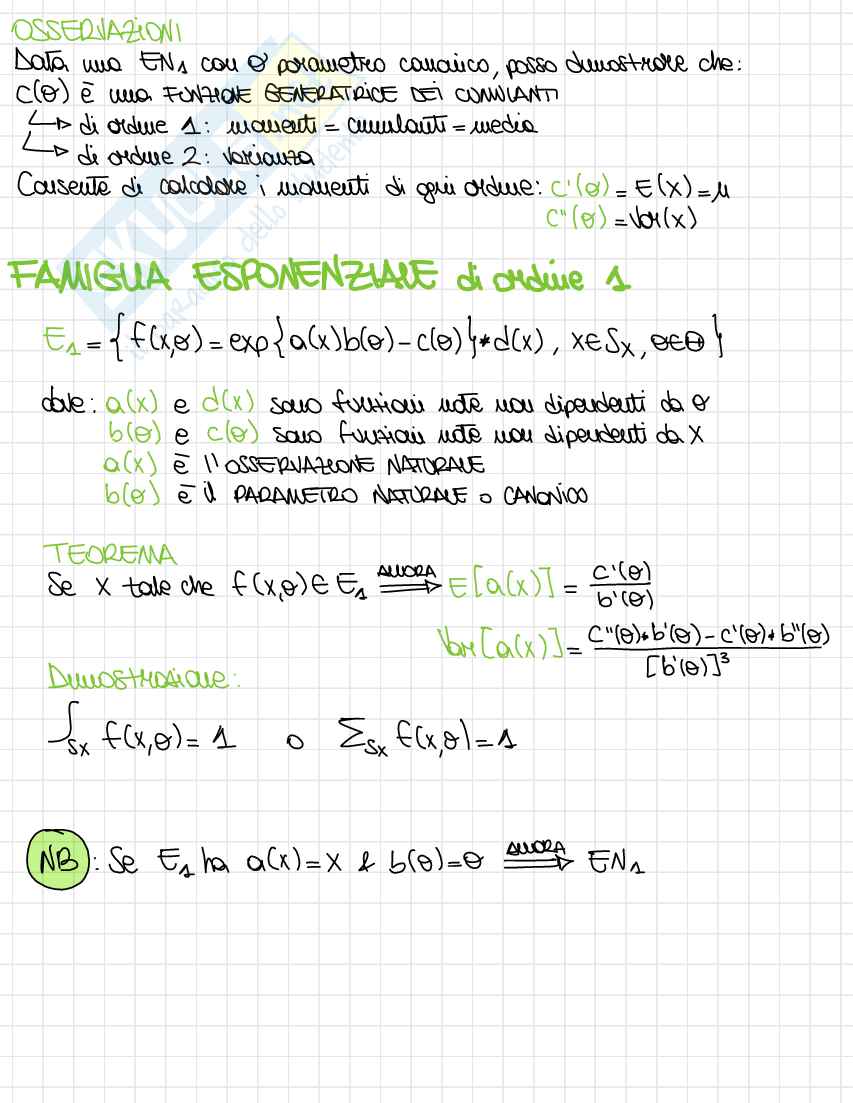 OSSERVAZIONI
Data una EN₁ con θ parametro canonico, posso dimostrare che:
c(θ) è una FUNZIONE GENERATRICE DEI CUMULANTI
↳ di ordine 1: momenti = cumulanti = media
↳ di ordine 2: varianza
Consente di calcolare i momenti di ogni ordine: c'(θ) = E(x) = μ
c''(θ) = Var(x)
FAMIGLIA ESPONENZIALE di ordine 1
E₁ = { f(x,θ) = exp{a(x)b(θ) - c(θ)} * d(x) , x∈Sₓ , θ∈Θ }
dove: a(x) e d(x) sono funzioni note non dipendenti da θ
b(θ) e c(θ) sono funzioni note non dipendenti da X
a(x) è l'OSSERVAZIONE NATURALE
b(θ) è il PARAMETRO NATURALE o CANONICO
TEOREMA
Se X tale che f(x,θ) ∈ E₁ ⟹ ALLORA E[a(x)] = c'(θ) / b'(θ)
Var[a(x)] = c''(θ)*b'(θ) - c'(θ)*b''(θ) / [b'(θ)]³
Dimostrazione:
∫Sx f(x,θ) = 1 o ΣSx f(x,θ) = 1
NB: Se E₁ ha a(x) = x & b(θ) = θ ⟹ ALLORA EN₁